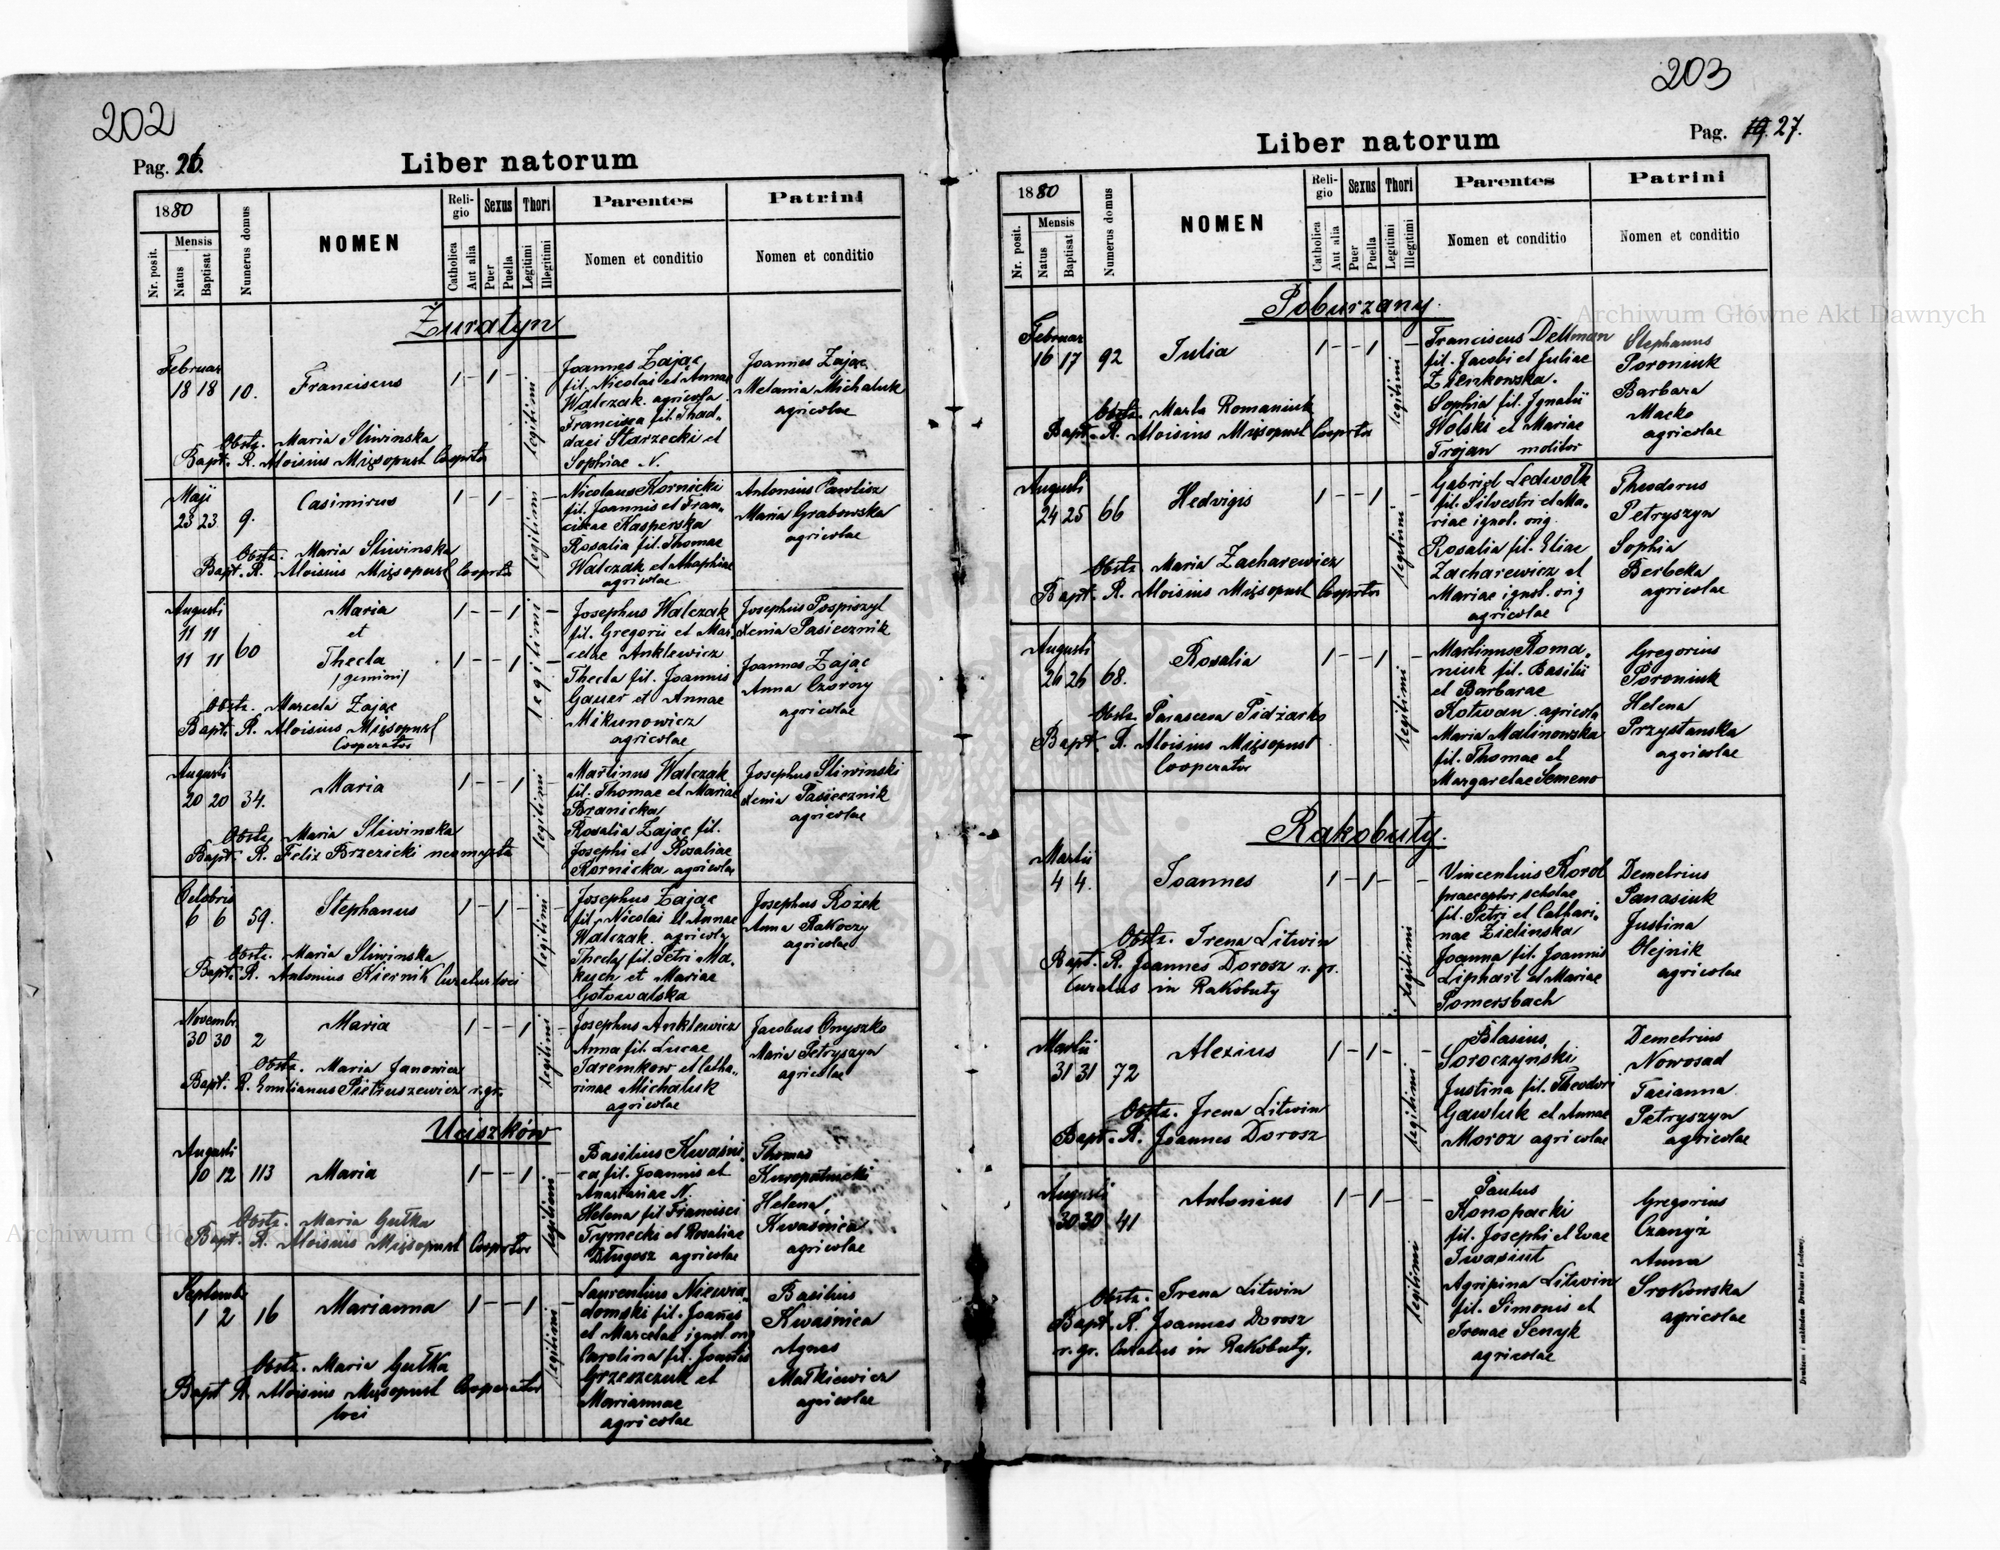 202
Pag. 26.
Liber natorum
1880
Nr. posit.
Mensis
Natus
Baptisat
Numerus domus
NOMEN
Religio
Catholica
Aut alia
Sexus
Puer
Puella
Thori
Legitimi
Illegitimi
Parentes
Nomen et conditio
Patrini
Nomen et conditio
Żuratyn
Februar
18 18 10. Franciscus 1 - 1 - legitimi -
Obstz. Maria Sliwinska
Bapt. R. Aloisius Mięsopust Cooprtr
Joannes Zając
fil. Nicolai et Annae
Walczak agricola
Francisca fil. Thad-
daei Starzecki et
Sophiae N.
Joannes Zając
Melania Michaluk
agricolae
Maji
23 23 9. Casimirus 1 - 1 - legitimi -
Obstz. Maria Sliwinska
Bapt. R. Aloisius Mięsopust Cooprtr
Nicolaus Kornicki
fil. Joannis et Fran-
ciscae Kasperska
Rosalia fil. Thomae
Walczak et Agaphiae
agricolae
Antonius Pawlisz
Maria Grabowska
agricolae
Augusti
11 11
11 11 60
Maria 1 - - 1 legitimi -
et
Thecla 1 - - 1 -
/gemini/
Obstz. Marcela Zając
Bapt. R. Aloisius Mięsopust
Cooperator
Josephus Walczak
fil. Gregorii et Mar-
celae Anklewicz
Thecla fil. Joannis
Gauer et Annae
Mikunowicz
agricolae
Josephus Pospiszyl
Xenia Pasiecznik
Joannes Zając
Anna Czorny
agricolae
Augusti
20 20 34. Maria 1 - - 1 legitimi
Obstz. Maria Sliwinska
Bapt. R. Felix Brzezicki neomysta
Martinus Walczak
fil. Thomae et Mariae
Branicka
Rosalia Zając fil.
Josephi et Rosaliae
Kornicka agricolae
Josephus Sliwinski
Xenia Pasiecznik
agricolae
Octobris
6 6 59. Stephanus 1 - 1 - legitimi -
Obstz. Maria Sliwinska
Bapt. R. Antonius Kiernik Curatus loci
Josephus Zając
fil. Nicolai et Annae
Walczak agricola
Thecla fil. Petri Ma-
kuch et Mariae
Gotowalska
Josephus Rożek
Anna Rakoczy
agricolae
Novembr.
30 30 2 Maria 1 - - 1 legitimi -
Obstz. Maria Janowicz
Bapt. R. Emilianus Pietruszewicz r. gr.
Josephus Anklewicz
Anna fil. Lucae
Jaremkow et Catha-
rinae Michaluk
agricolae
Jacobus Onyszko
Maria Petryszyn
agricolae
Uciszków
Augusti
10 12 113 Maria 1 - - 1 legitimi -
Obstz. Maria Gułka
Bapt. R. Aloisius Mięsopust Cooprtor
Basilius Kwaśni-
ca fil. Joannis et
Anastasiae N.
Helena fil. Francisci
Tymecki et Rosaliae
Długosz agricolae
Thomas
Kuropatnicki
Helena
Kwaśnica
agricolae
Septembr
1 2 16 Marianna 1 - - 1 legitimi -
Obstz. Maria Gułka
Bapt. R. Aloisius Mięsopust Cooperator
loci
Laurentius Niewia-
domski fil. Joannes
et Marcelae ignot. orig
Carolina fil. Joannis
Grzeszczuk et
Mariannae
agricolae
Basilius
Kwaśnica
Agnes
Matkiewicz
agricolae
203
Liber natorum
Pag. 19. 27.
1880
Nr. posit.
Mensis
Natus
Baptisat
Numerus domus
NOMEN
Religio
Catholica
Aut alia
Sexus
Puer
Puella
Thori
Legitimi
Illegitimi
Parentes
Nomen et conditio
Patrini
Nomen et conditio
Poburzany.
Februar
16 17 92 Julia 1 - - 1 legitimi -
Obstz. Marta Romaniuk
Bapt. R. Aloisius Mięsopust Cooprtr
Franciscus Dellman
fil. Jacobi et Juliae
Zienkowska.
Sophia fil. Ignatii
Wolski et Mariae
Trojan molitor
Stephanus
Poroniuk
Barbara
Macko
agricolae
Augusti
24 25 66 Hedvigis 1 - - 1 legitimi -
Obstz Maria Zacharewicz
Bapt. R. Aloisius Mięsopust Cooprtr
Gabriel Ledwolk
fil. Silvestri et Ma-
riae ignot. orig.
Rosalia fil. Eliae
Zacharewicz et
Mariae ignot. orig
agricolae
Theodorus
Petryszyn
Sophia
Berbeka
agricolae
Augusti
26 26 68. Rosalia 1 - - 1 - legitimi
Obstz. Parasceva Pidżarko
Bapt. R. Aloisius Mięsopust
Cooperator
Martinus Roma-
niuk fil. Basilii
et Barbarae
Kotwan agricola
Maria Malinowska
fil. Thomae et
Margaretae Semeno
Gregorius
Poroniuk
Helena
Przystanska
agricolae
Rakobuty.
Martii
4 4. Joannes 1 - 1 - legitimi -
Obstz. Irena Litwin
Bapt. R. Joannes Dorosz r. gr.
Curatus in Rakobuty
Vincentius Korol
praeceptor scholae
fil. Petri et Cathari-
nae Zielinska
Joanna fil. Joannis
Liphart et Mariae
Pomersbach
Demetrius
Panasiuk
Justina
Olejnik
agricolae
Martii
31 31 72 Alexius 1 - 1 - legitimi -
Obstz. Irena Litwin
Bapt. R. Joannes Dorosz
Blasius
Soroczyński
Justina fil. Theodori
Gawluk et Annae
Moroz agricolae
Demetrius
Nowosad
Tacianna
Petryszyn
agricolae
Augusti
30 30 41 Antonius 1 - 1 - legitimi -
Obstz. Irena Litwin
Bapt. R. Joannes Dorosz
r. gr. Curatus in Rakobuty.
Paulus
Konopacki
fil. Josephi et Evae
Iwasiut
Agripina Litwin
fil. Simonis et
Irenae Senyk
agricolae
Gregorius
Czanyż
Anna
Srokowska
agricolae
Drukiem i nakładem Drukarni Ludowej.
Archiwum Główne Akt Dawnych
Archiwum Główne Akt Dawnych